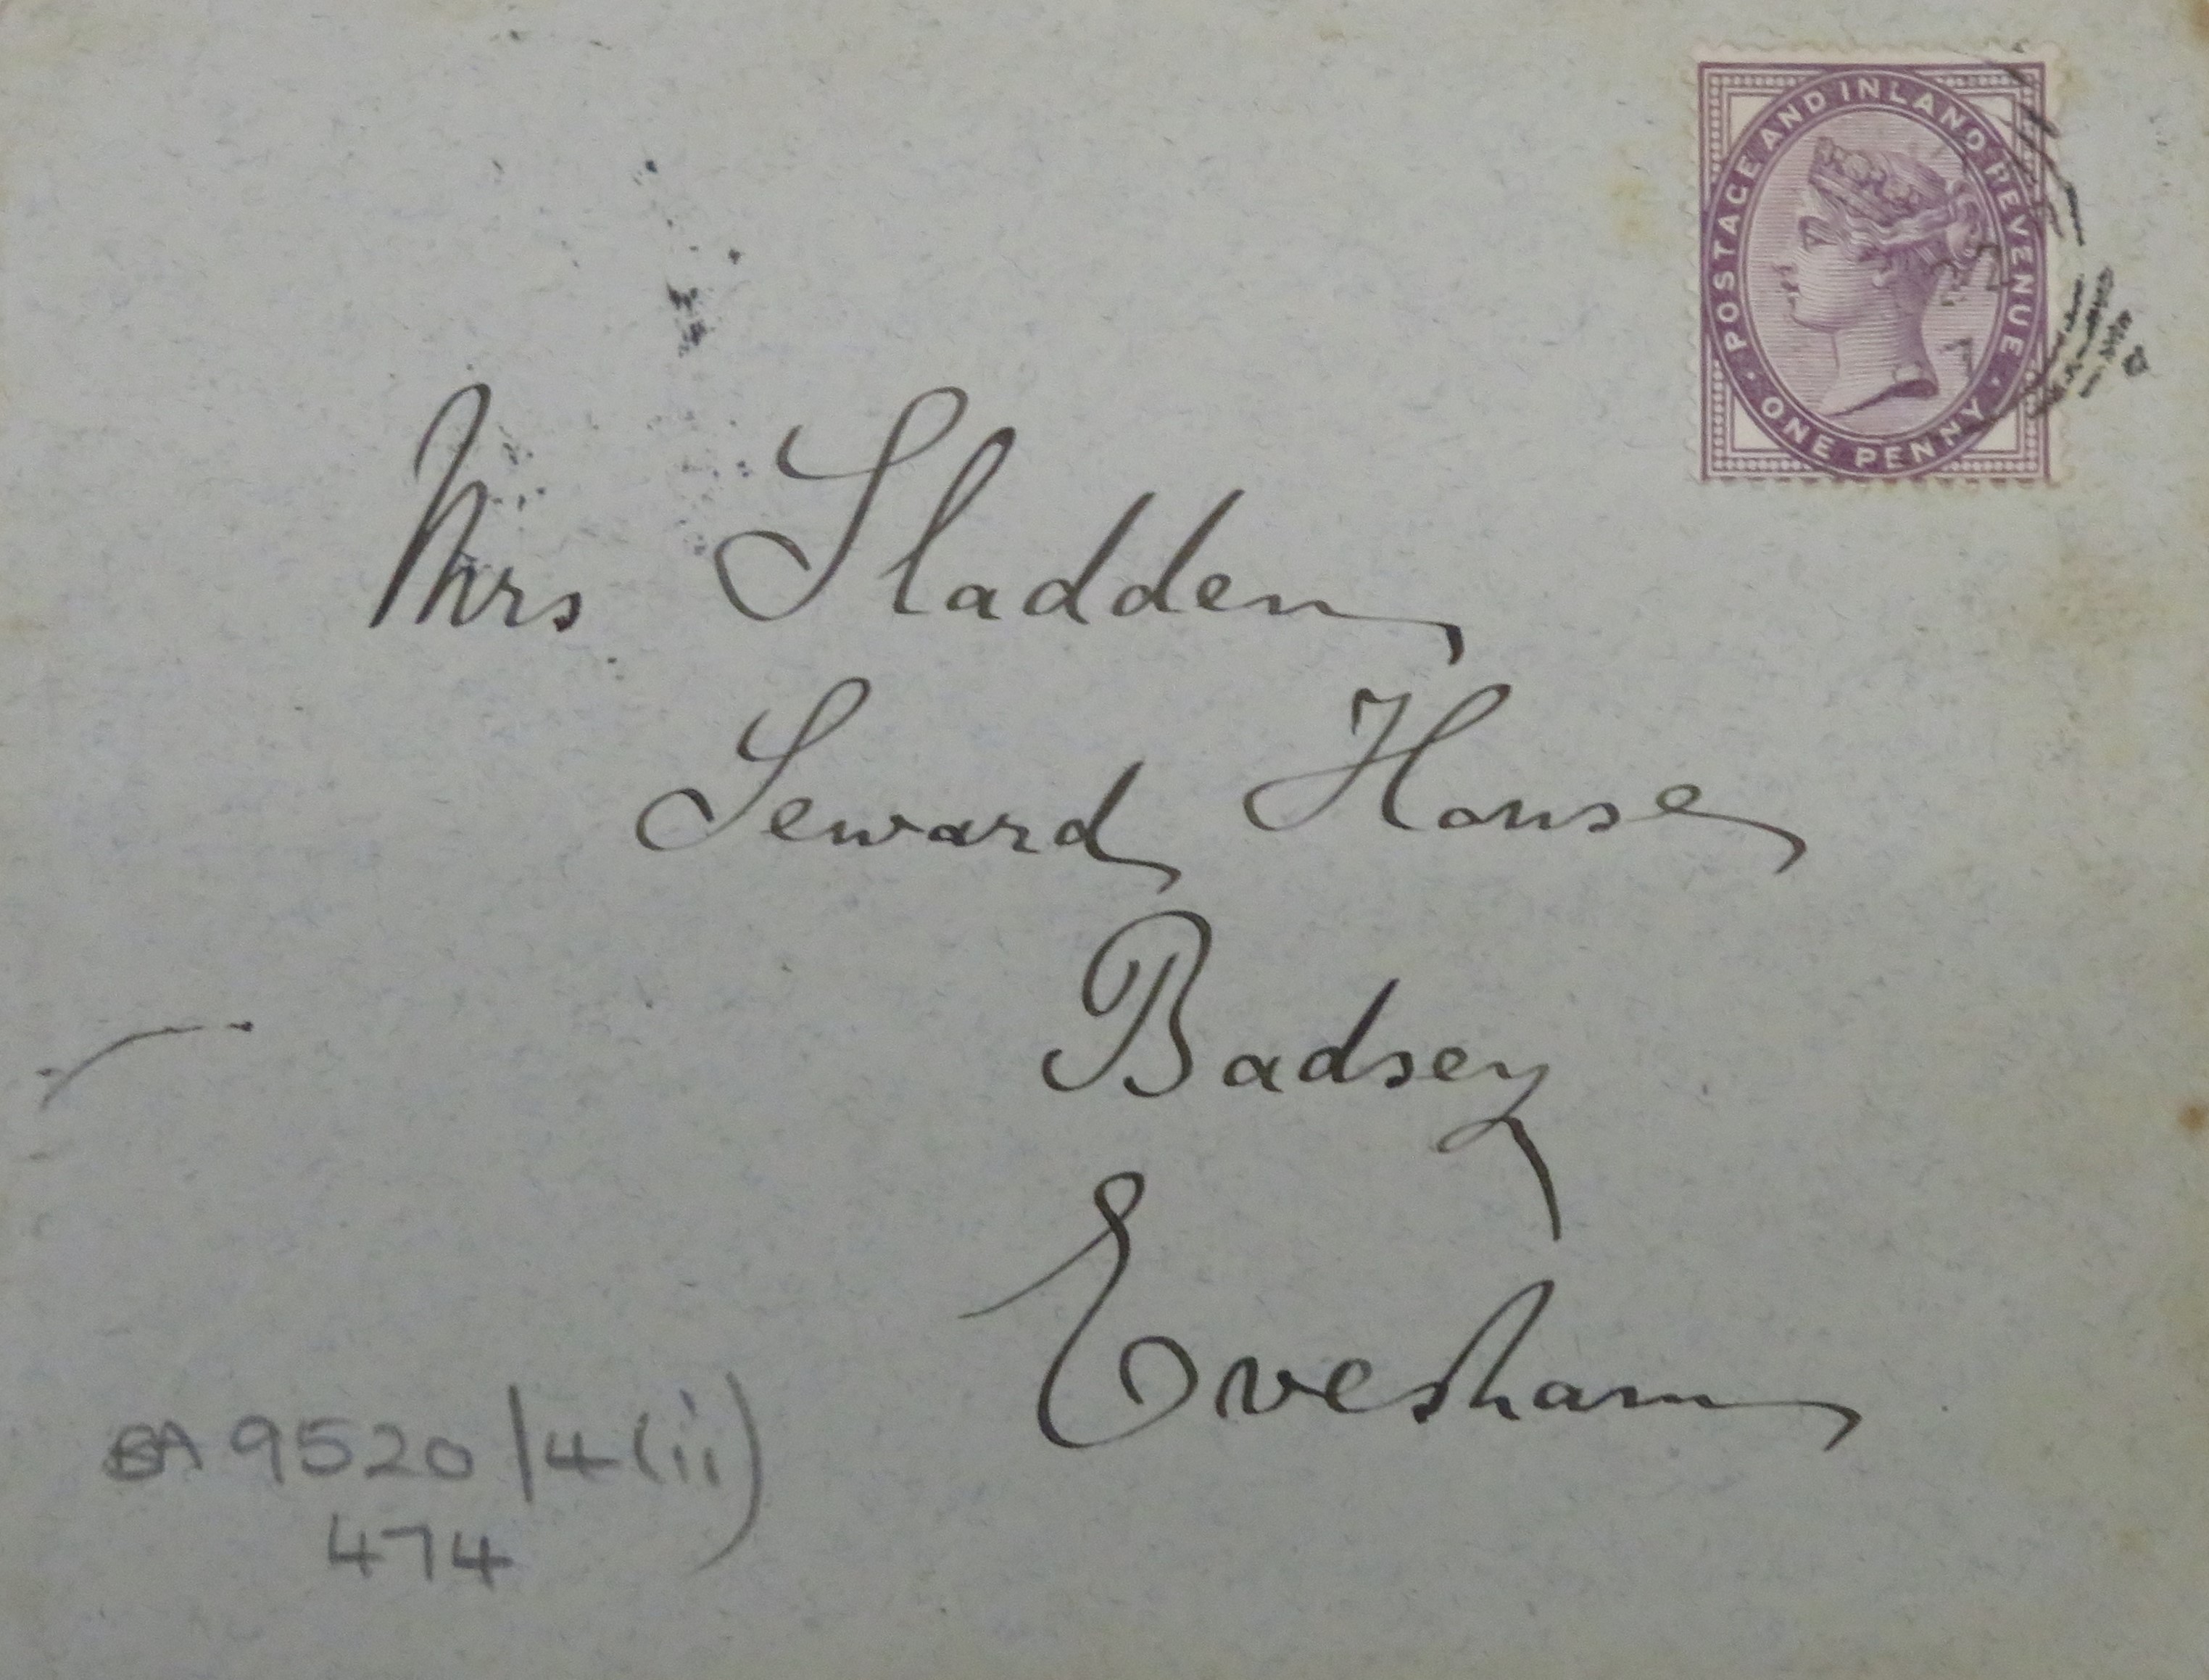 POSTAGE AND INLAND REVENUE
ONE PENNY
Mrs Sladden
Seward House
Badsey
Evesham
BA 9520/4(ii)
474